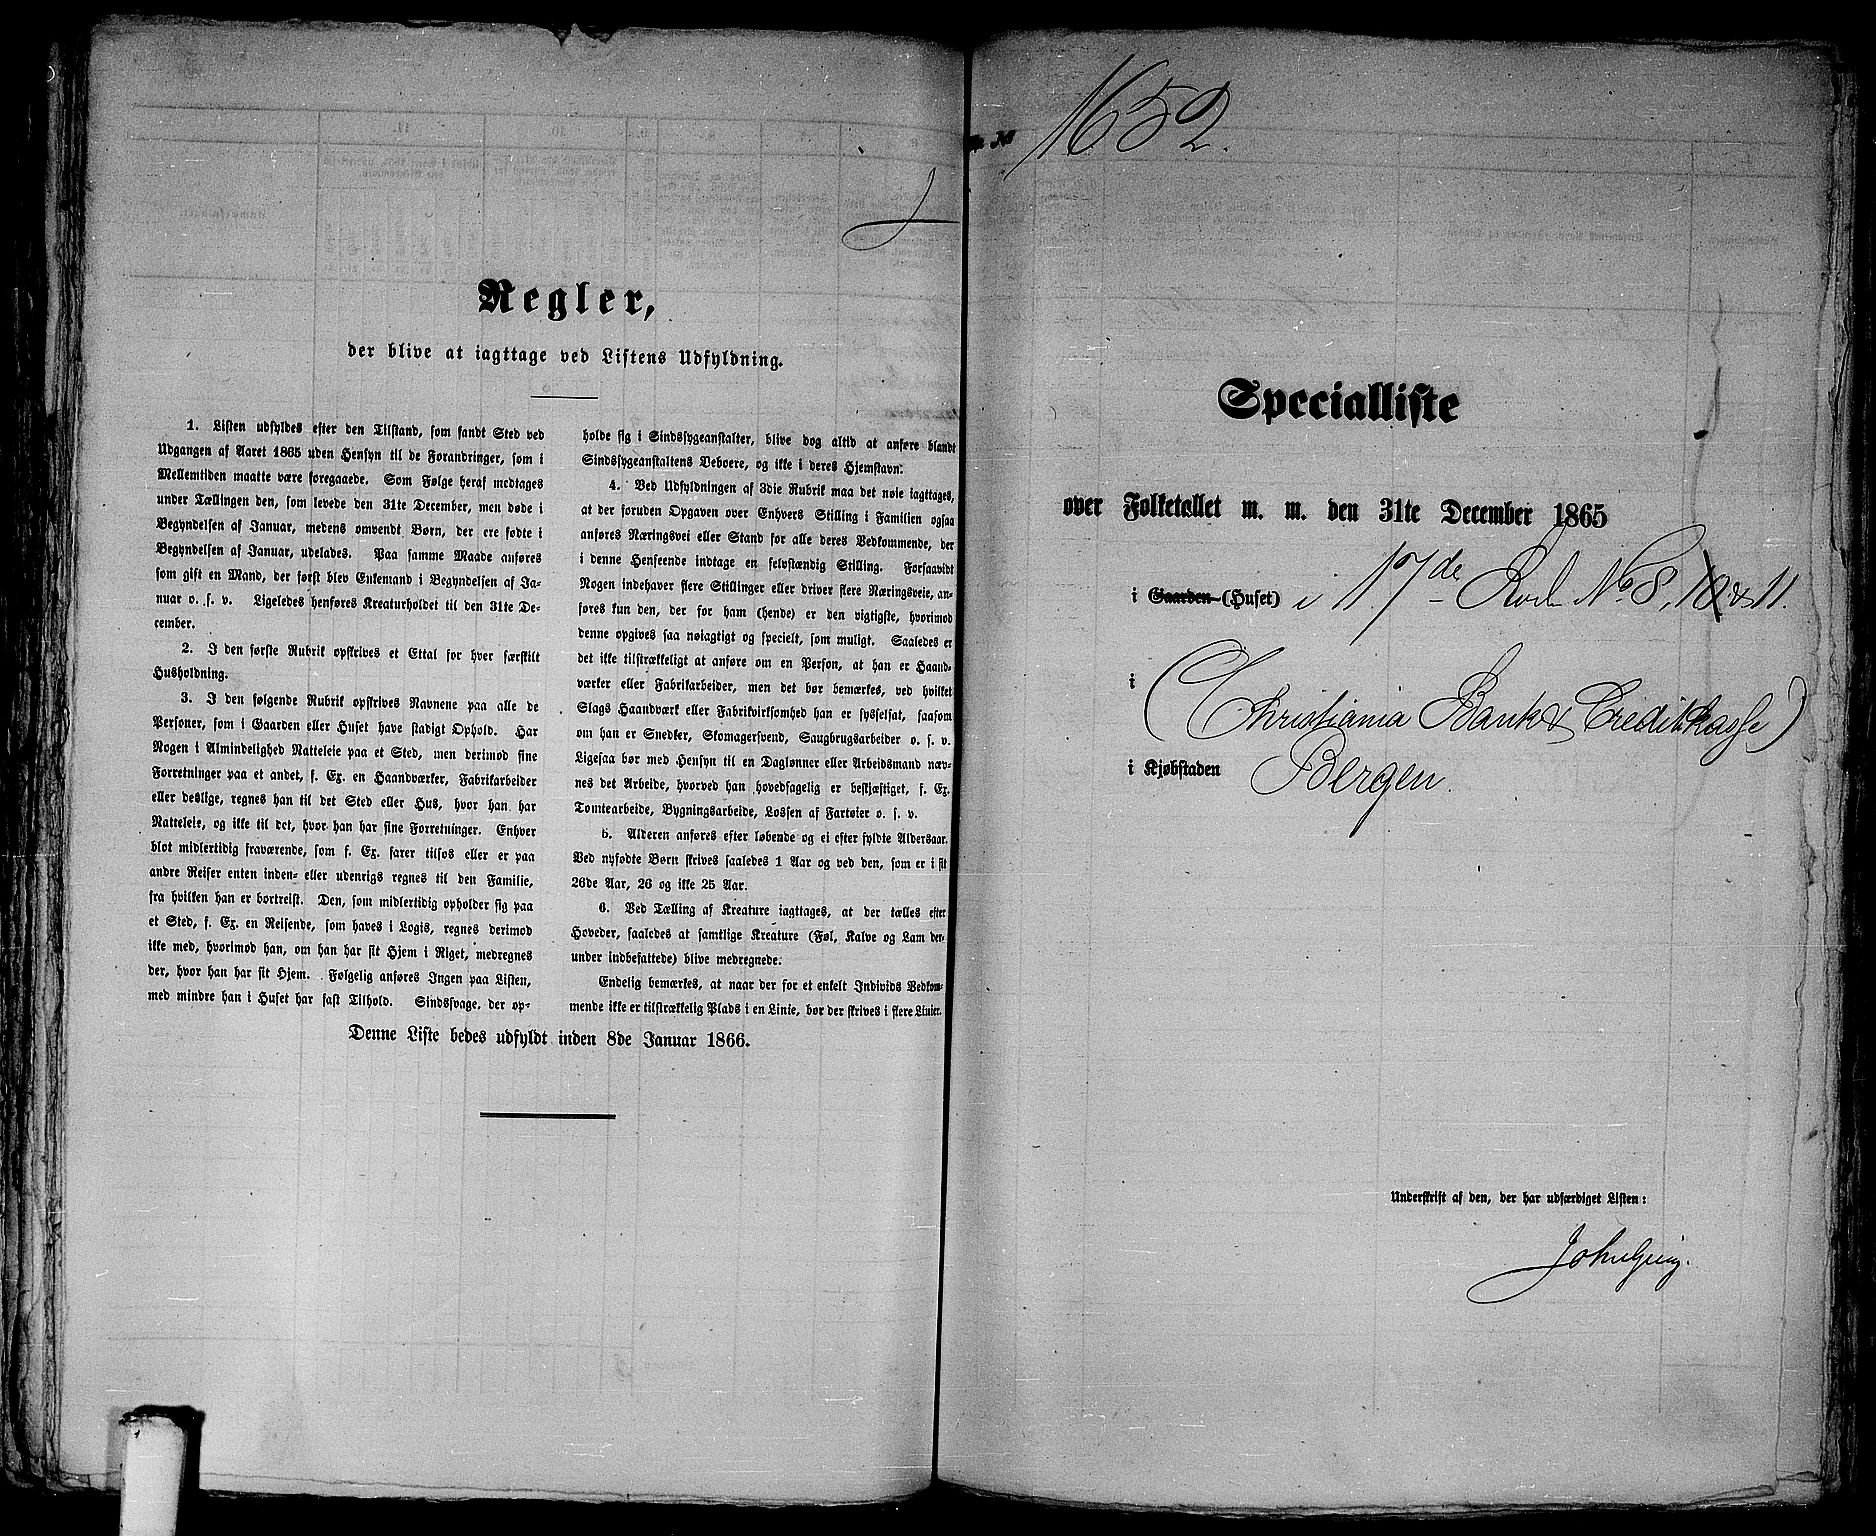 Regler,
der blive at iagttage ved Listens Udfyldning.
1. Listen udfyldes efter den Tilstand, som fandt Sted ved
Udgangen af Aaret 1865 uden Hensyn til de Forandringer, som i
Mellemtiden maatte være foregaaede. Som Følge heraf medtages
under Tællingen den, som levede den 31te December, men døde i
Begyndelsen af Januar, medens omvendt Børn, der ere fødte i
Begyndelsen af Januar, udelades. Paa samme Maade anføres
som gift en Mand, der først blev Enkemand i Begyndelsen af Ja-
nuar o. s. v. Ligeledes henføres Kreaturholdet til den 31te De-
cember.
2. I den første Rubrik opskrives et Ettal for hver særskilt
Husholdning.
3. I den følgende Rubrik opskrives Navnene paa alle de
Personer, som i Gaarden eller Huset have stadigt Ophold. Har
Nogen i Almindelighed Natteleie paa et Sted, men derimod sine
Forretninger paa et andet, f. Ex. en Haandværker, Fabrikarbeider
eller deslige, regnes han til det Sted eller Hus, hvor han har
Natteleie, og ikke til det, hvor han har sine Forretninger. Enhver
blot midlertidig fraværende, som f. Ex. farer tilsøs eller er paa
andre Reiser enten inden- eller udenrigs regnes til den Familie,
fra hvilken han er bortreist. Den, som midlertidig opholder sig paa
et Sted, f. Ex. en Reisende, som haves i Logis, regnes derimod
ikke med, hvorimod han, om han har sit Hjem i Riget, medregnes
der, hvor han har sit Hjem. Følgelig anføres Ingen paa Listen,
med mindre han i Huset har fast Tilhold. Sindssvage, der op-
holde sig i Sindssygeanstalter, blive dog altid at anføre blandt
Sindssygeanstaltens Beboere, og ikke i deres Hjemstavn.
4. Ved Udfyldningen af 3die Rubrik maa det nøie iagttages,
at der foruden Opgaven over Enhvers Stilling i Familien ogsaa
anføres Næringsvei eller Stand for alle deres Vedkommende, der
i denne Henseende indtage en selvstændig Stilling. Forsaavidt
Nogen indehaver flere Stillinger eller driver flere Næringsveie, an-
føres kun den, der for ham (hende) er den vigtigste, hvorimod
denne opgives saa nøiagtigt og specielt, som muligt. Saaledes er
det ikke tilstrækkeligt at anføre om en Person, at han er Haand-
værker eller Fabrikarbeider, men det bør bemærkes, ved hvilket
Slags Haandværk eller Fabrikvirksomhed han er sysselsat, saasom
om han er Snedker, Skomagersvend, Saugbrugsarbeider o. s. v.
Ligesaa bør med Hensyn til en Daglønner eller Arbeidsmand næv-
nes det Arbeide, hvorved han hovedsagelig er beskjæftiget, f. Ex.
Tomtearbeide, Bygningsarbeide, Lossen af Fartøier o. s. v.
5. Alderen anføres efter løbende og ei efter fyldte Aldersaar.
Ved nyfødte Børn skrives saaledes 1 Aar og ved den, som er i sit
26de Aar, 26 og ikke 25 Aar.
6. Ved Tælling af Kreature iagttages, at der tælles efter
Hoveder, saaledes at samtlige Kreature (Føl, Kalve og Lam der-
under indbefattede) blive medregnede.
Endelig bemærkes, at naar der for et enkelt Individs Vedkom-
mende ikke er tilstrækkelig Plads i en Linie, bør der skrives i flere Linier.
Denne Liste bedes udfyldt inden 8de Januar 1866.
1652.
Specialliste
over Folketallet m. m. den 31te December 1865
i Gaarden (Huset) i 17de Rode No 8, 10 & 11.
i (Christiania Bank & Creditkasse)
i Kjøbstaden Bergen.
Underskrift af den, der har udfærdiget Listen: